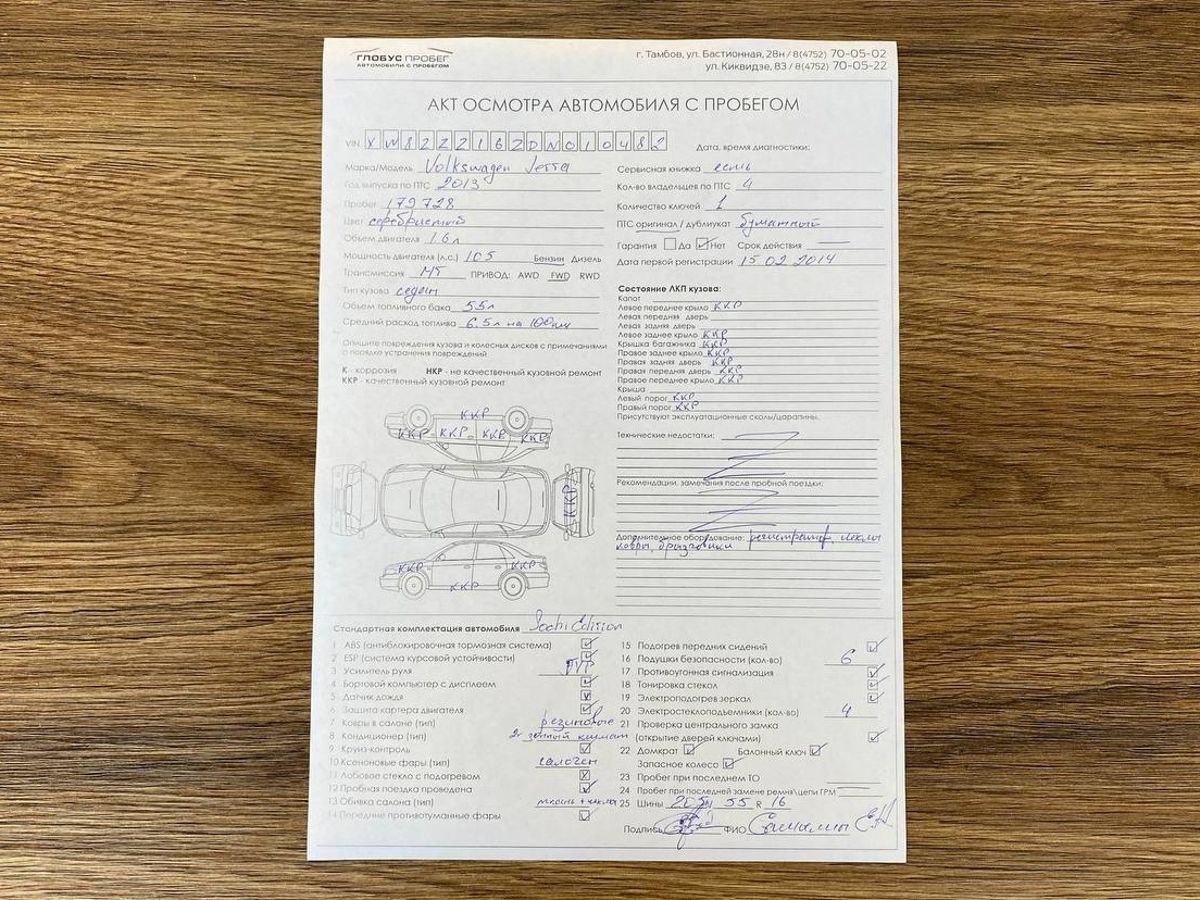 ГЛОБУС ПРОБЕГ
АВТОМОБИЛИ С ПРОБЕГОМ
г. Тамбов, ул. Бастионная, 28н / 8(4752) 70-05-02
ул. Киквидзе, 83 / 8(4752) 70-05-22
АКТ ОСМОТРА АВТОМОБИЛЯ С ПРОБЕГОМ
VIN XW8ZZZ16ZDN010482
Марка/Модель Volkswagen Jetta
Год выпуска по ПТС 2013
Пробег 179 728
Цвет серебристый
Объем двигателя 1.6 л
Мощность двигателя (л.с.) 105 Бензин Дизель
Трансмиссия МТ ПРИВОД: AWD FWD RWD
Тип кузова седан
Объем топливного бака 55л
Средний расход топлива 6.5л на 100км
Опишите повреждения кузова и колесных дисков с примечаниями
о порядке устранения повреждений
К - коррозия НКР - не качественный кузовной ремонт
ККР - качественный кузовной ремонт
ККР
ККР ККР ККР ККР
ККР
ККР ККР
ККР
Дата, время диагностики:
Сервисная книжка есть
Кол-во владельцев по ПТС 4
Количество ключей 1
ПТС оригинал / дубликат бумажный
Гарантия Да Нет Срок действия
Дата первой регистрации 15 02 2014
Состояние ЛКП кузова:
Капот
Левое переднее крыло ККР
Левая передняя дверь
Левая задняя дверь
Левое заднее крыло ККР
Крышка багажника ККР
Правое заднее крыло ККР
Правая задняя дверь ККР
Правая передняя дверь ККР
Правое переднее крыло ККР
Крыша
Левый порог ККР
Правый порог ККР
Присутствуют эксплуатационные сколы/царапины.
Технические недостатки:
Рекомендации, замечания после пробной поездки:
Дополнительное оборудование: регистратор, чехлы
ковры, брызговики
Стандартная комплектация автомобиля Sochi Edition
1 ABS (антиблокировочная тормозная система)
2 ESP (система курсовой устойчивости)
3 Усилитель руля
4 Бортовой компьютер с дисплеем
5 Датчик дождя
6 Защита картера двигателя
7 Ковры в салоне (тип) резиновые
8 Кондиционер (тип) 2х зонный климат
9 Круиз-контроль
10 Ксеноновые фары (тип) галоген
11 Лобовое стекло с подогревом
12 Пробная поездка проведена
13 Обивка салона (тип) ткань + чехлы
14 Передние противотуманные фары
15 Подогрев передних сидений
16 Подушки безопасности (кол-во) 6
17 Противоугонная сигнализация
18 Тонировка стекол
19 Электроподогрев зеркал
20 Электростеклоподъемники (кол-во) 4
21 Проверка центрального замка
(открытие дверей ключами)
22 Домкрат Балонный ключ
Запасное колесо
23 Пробег при последнем ТО
24 Пробег при последней замене ремня\цепи ГРМ
25 Шины 205 \ 55 R 16
Подпись ФИО